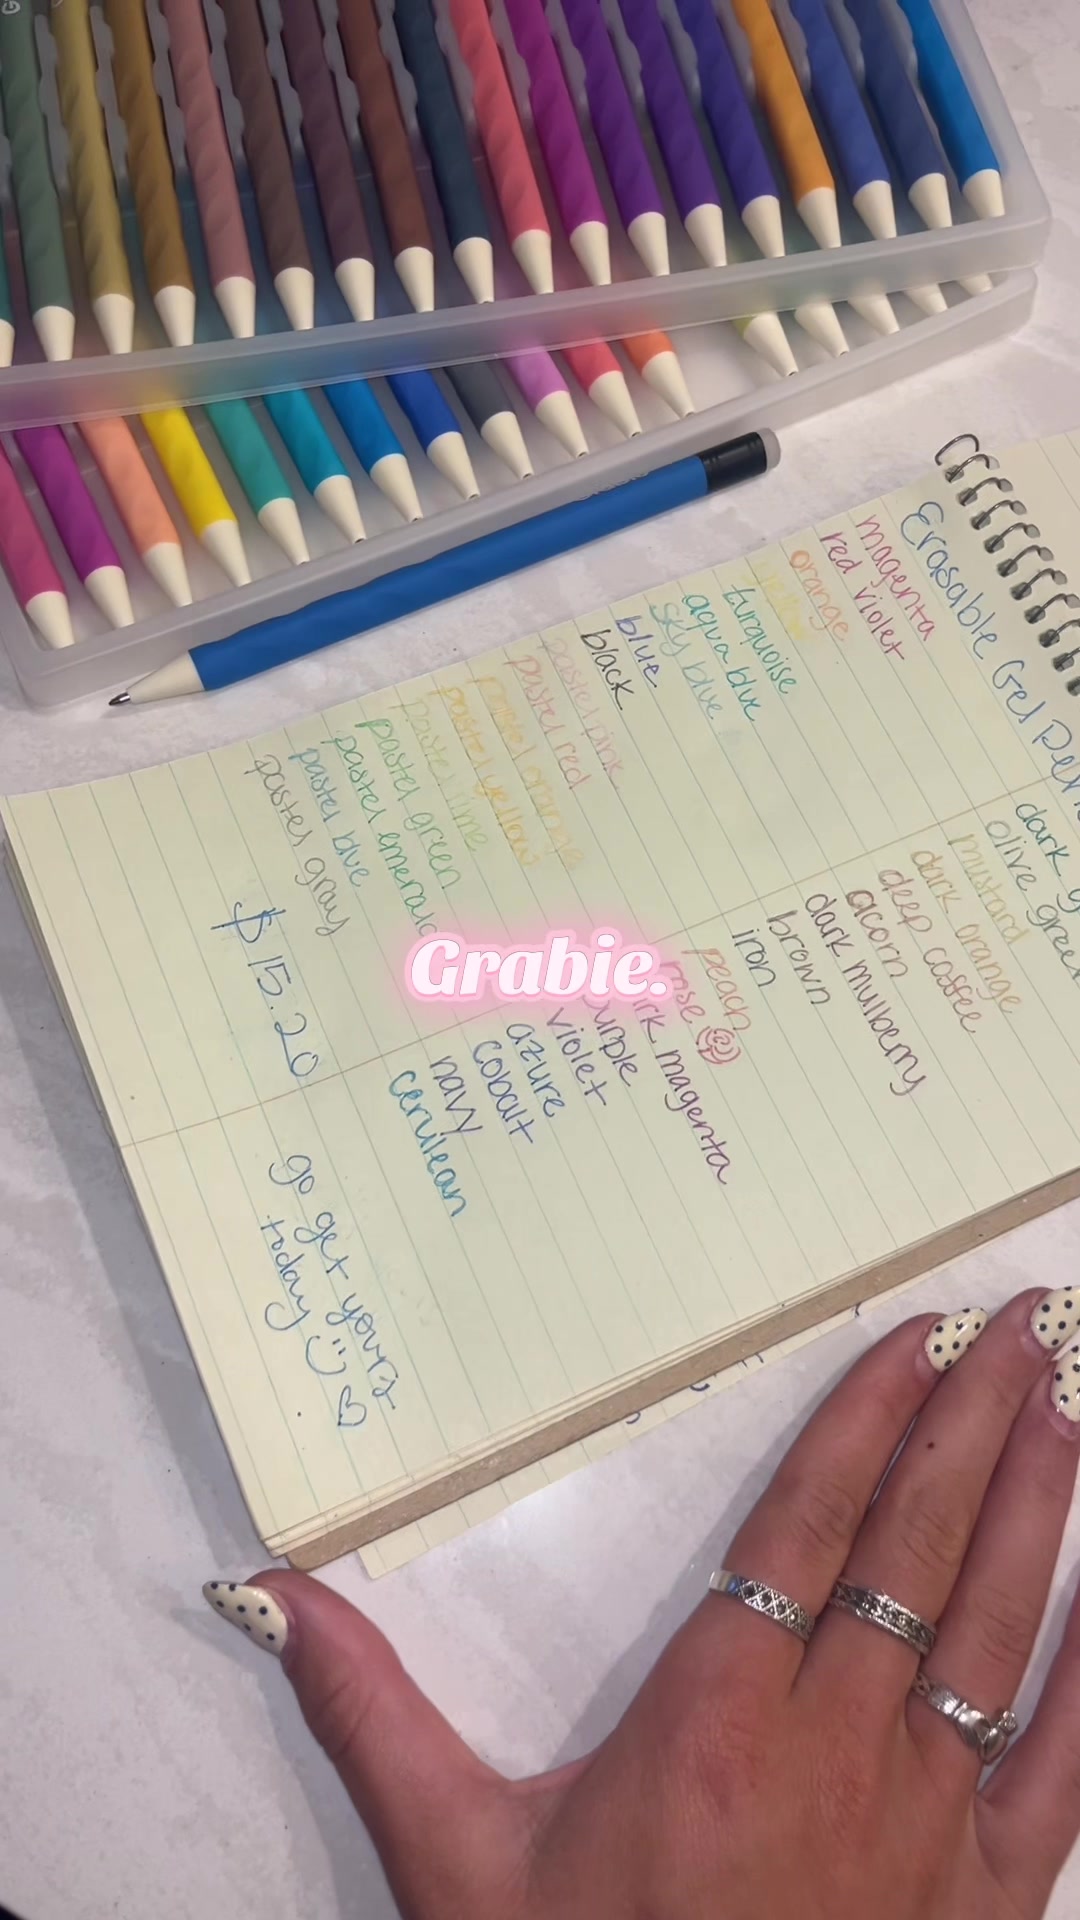 Erasable Gel Pen
magenta
red violet
orange
yellow
turquoise
aqua blue
sky blue
blue
black
pastel pink
pastel red
pastel orange
pastel yellow
pastel lime
pastel green
pastel emerald
pastel blue
pastel gray
$15.20
dark g
olive green
mustard
dark orange
deep coffee
acorn
dark mulberry
brown
iron
peach
rose
rk magenta
purple
violet
azure
cobalt
navy
cerulean
go get yours
today
Grabie.